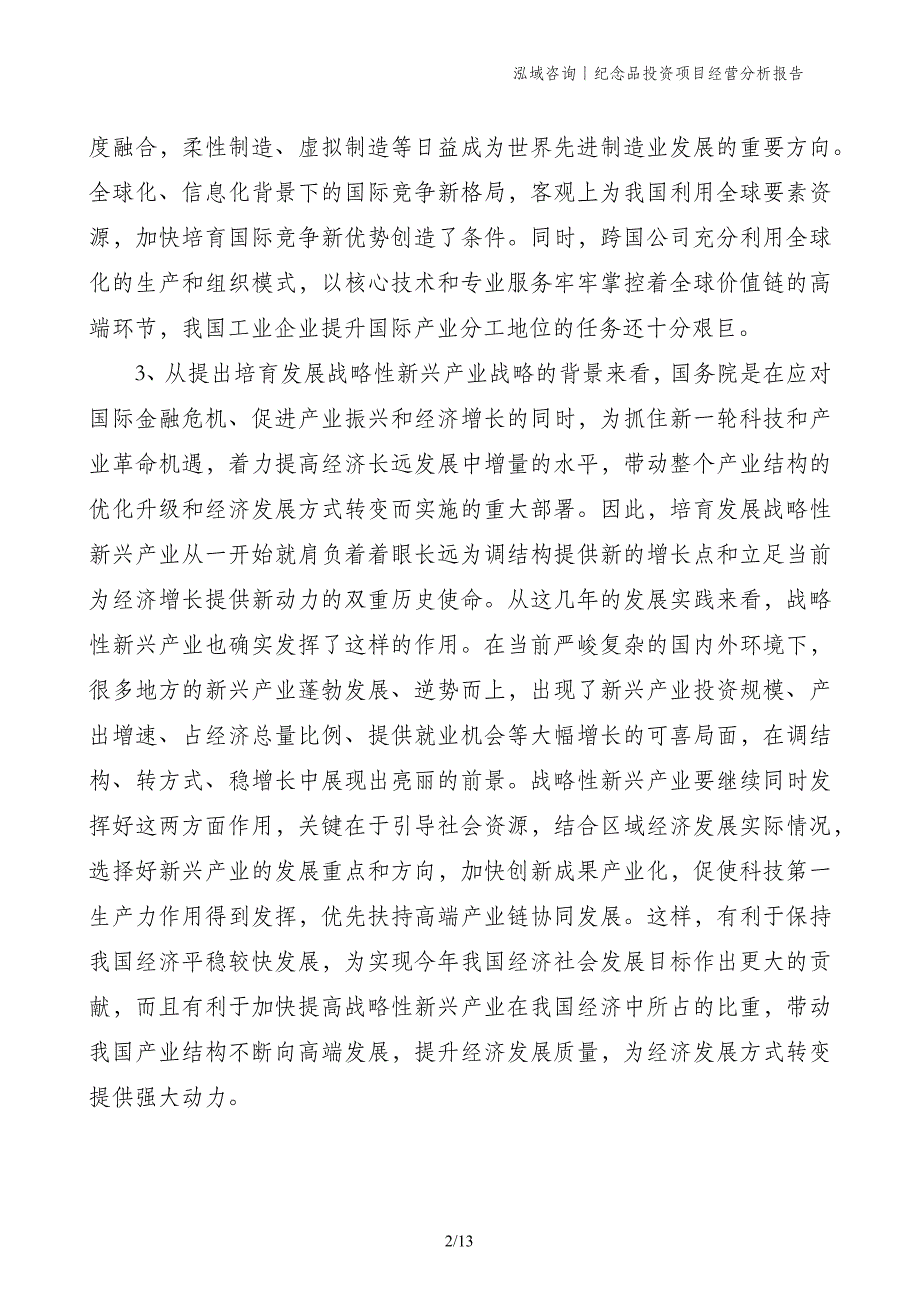 泓域咨询丨纪念品投资项目经营分析报告
度融合，柔性制造、虚拟制造等日益成为世界先进制造业发展的重要方向。
全球化、信息化背景下的国际竞争新格局，客观上为我国利用全球要素资
源，加快培育国际竞争新优势创造了条件。同时，跨国公司充分利用全球
化的生产和组织模式，以核心技术和专业服务牢牢掌控着全球价值链的高
端环节，我国工业企业提升国际产业分工地位的任务还十分艰巨。
3、从提出培育发展战略性新兴产业战略的背景来看，国务院是在应对
国际金融危机、促进产业振兴和经济增长的同时，为抓住新一轮科技和产
业革命机遇，着力提高经济长远发展中增量的水平，带动整个产业结构的
优化升级和经济发展方式转变而实施的重大部署。因此，培育发展战略性
新兴产业从一开始就肩负着着眼长远为调结构提供新的增长点和立足当前
为经济增长提供新动力的双重历史使命。从这几年的发展实践来看，战略
性新兴产业也确实发挥了这样的作用。在当前严峻复杂的国内外环境下，
很多地方的新兴产业蓬勃发展、逆势而上，出现了新兴产业投资规模、产
出增速、占经济总量比例、提供就业机会等大幅增长的可喜局面，在调结
构、转方式、稳增长中展现出亮丽的前景。战略性新兴产业要继续同时发
挥好这两方面作用，关键在于引导社会资源，结合区域经济发展实际情况，
选择好新兴产业的发展重点和方向，加快创新成果产业化，促使科技第一
生产力作用得到发挥，优先扶持高端产业链协同发展。这样，有利于保持
我国经济平稳较快发展，为实现今年我国经济社会发展目标作出更大的贡
献，而且有利于加快提高战略性新兴产业在我国经济中所占的比重，带动
我国产业结构不断向高端发展，提升经济发展质量，为经济发展方式转变
提供强大动力。
2/13